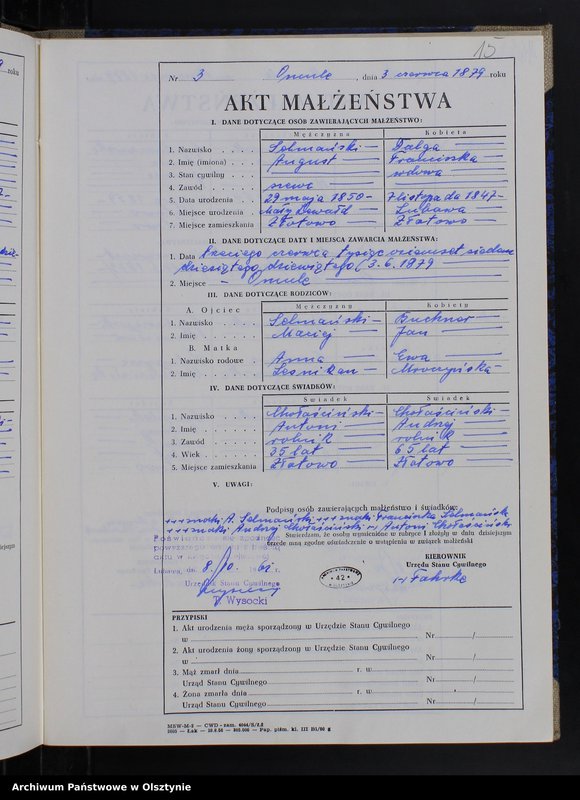 15
Nr 3 Omule, dnia 3 czerwca 1879 roku
AKT MAŁŻEŃSTWA
I. DANE DOTYCZĄCE OSÓB ZAWIERAJĄCYCH MAŁŻEŃSTWO:
Mężczyzna Kobieta
1. Nazwisko Selmański Dalga
2. Imię (imiona) August Franciszka
3. Stan cywilny wdowa
4. Zawód szewc
5. Data urodzenia 29 maja 1850 7 listopada 1847
6. Miejsce urodzenia Mały Lubawa
7. Miejsce zamieszkania Złotowo Złotowo
II. DANE DOTYCZĄCE DATY I MIEJSCA ZAWARCIA MAŁŻEŃSTWA:
1. Data trzeciego czerwca tysiąc osiemset siedem
dziesiątego dziewiątego (3.6.1879
2. Miejsce Omule
III. DANE DOTYCZĄCE RODZICÓW:
Mężczyzny Kobiety
A. Ojciec
1. Nazwisko Selmański Buchner
2. Imię Maciej Jan
B. Matka
1. Nazwisko rodowe Anna Ewa
2. Imię Mroczyńska
IV. DANE DOTYCZĄCE ŚWIADKÓW:
Świadek Świadek
1. Nazwisko Chołaściński Chołaściński
2. Imię Antoni Andrzej
3. Zawód rolnik rolnik
4. Wiek 35 lat 65 lat
5. Miejsce zamieszkania Złotowo Złotowo
V. UWAGI:
Podpisy osób zawierających małżeństwo i świadków:
+++ znaki A. Selmański, +++ znaki Franciszka Selmańska
+++ znaki Andrzej Chołaściński, (-) Antoni Chołaściński
Stwierdzam, że osoby wymienione w rubryce I złożyły w dniu dzisiejszym
przede mną zgodne oświadczenie o wstąpieniu w związek małżeński
Poświadczam zgodność
powyższego
Lubawa, dn. 8. r.
Urzędnik Stanu Cywilnego
Wysocki
KIEROWNIK
Urzędu Stanu Cywilnego
42
PRZYPISKI
1. Akt urodzenia męża sporządzony w Urzędzie Stanu Cywilnego
w Nr /
2. Akt urodzenia żony sporządzony w Urzędzie Stanu Cywilnego
w Nr /
3. Mąż zmarł dnia r. w
Urząd Stanu Cywilnego Nr /
4. Żona zmarła dnia r. w
Urząd Stanu Cywilnego Nr /
Archiwum Państwowe w Olsztynie